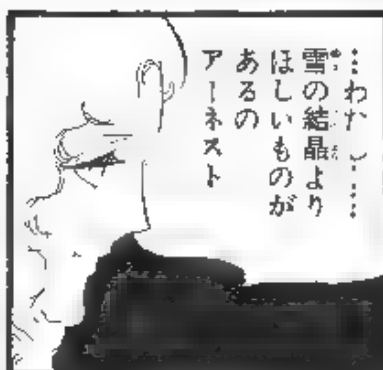 …わたし……
雪の結晶より
ほしいものが
あるの
アーネスト